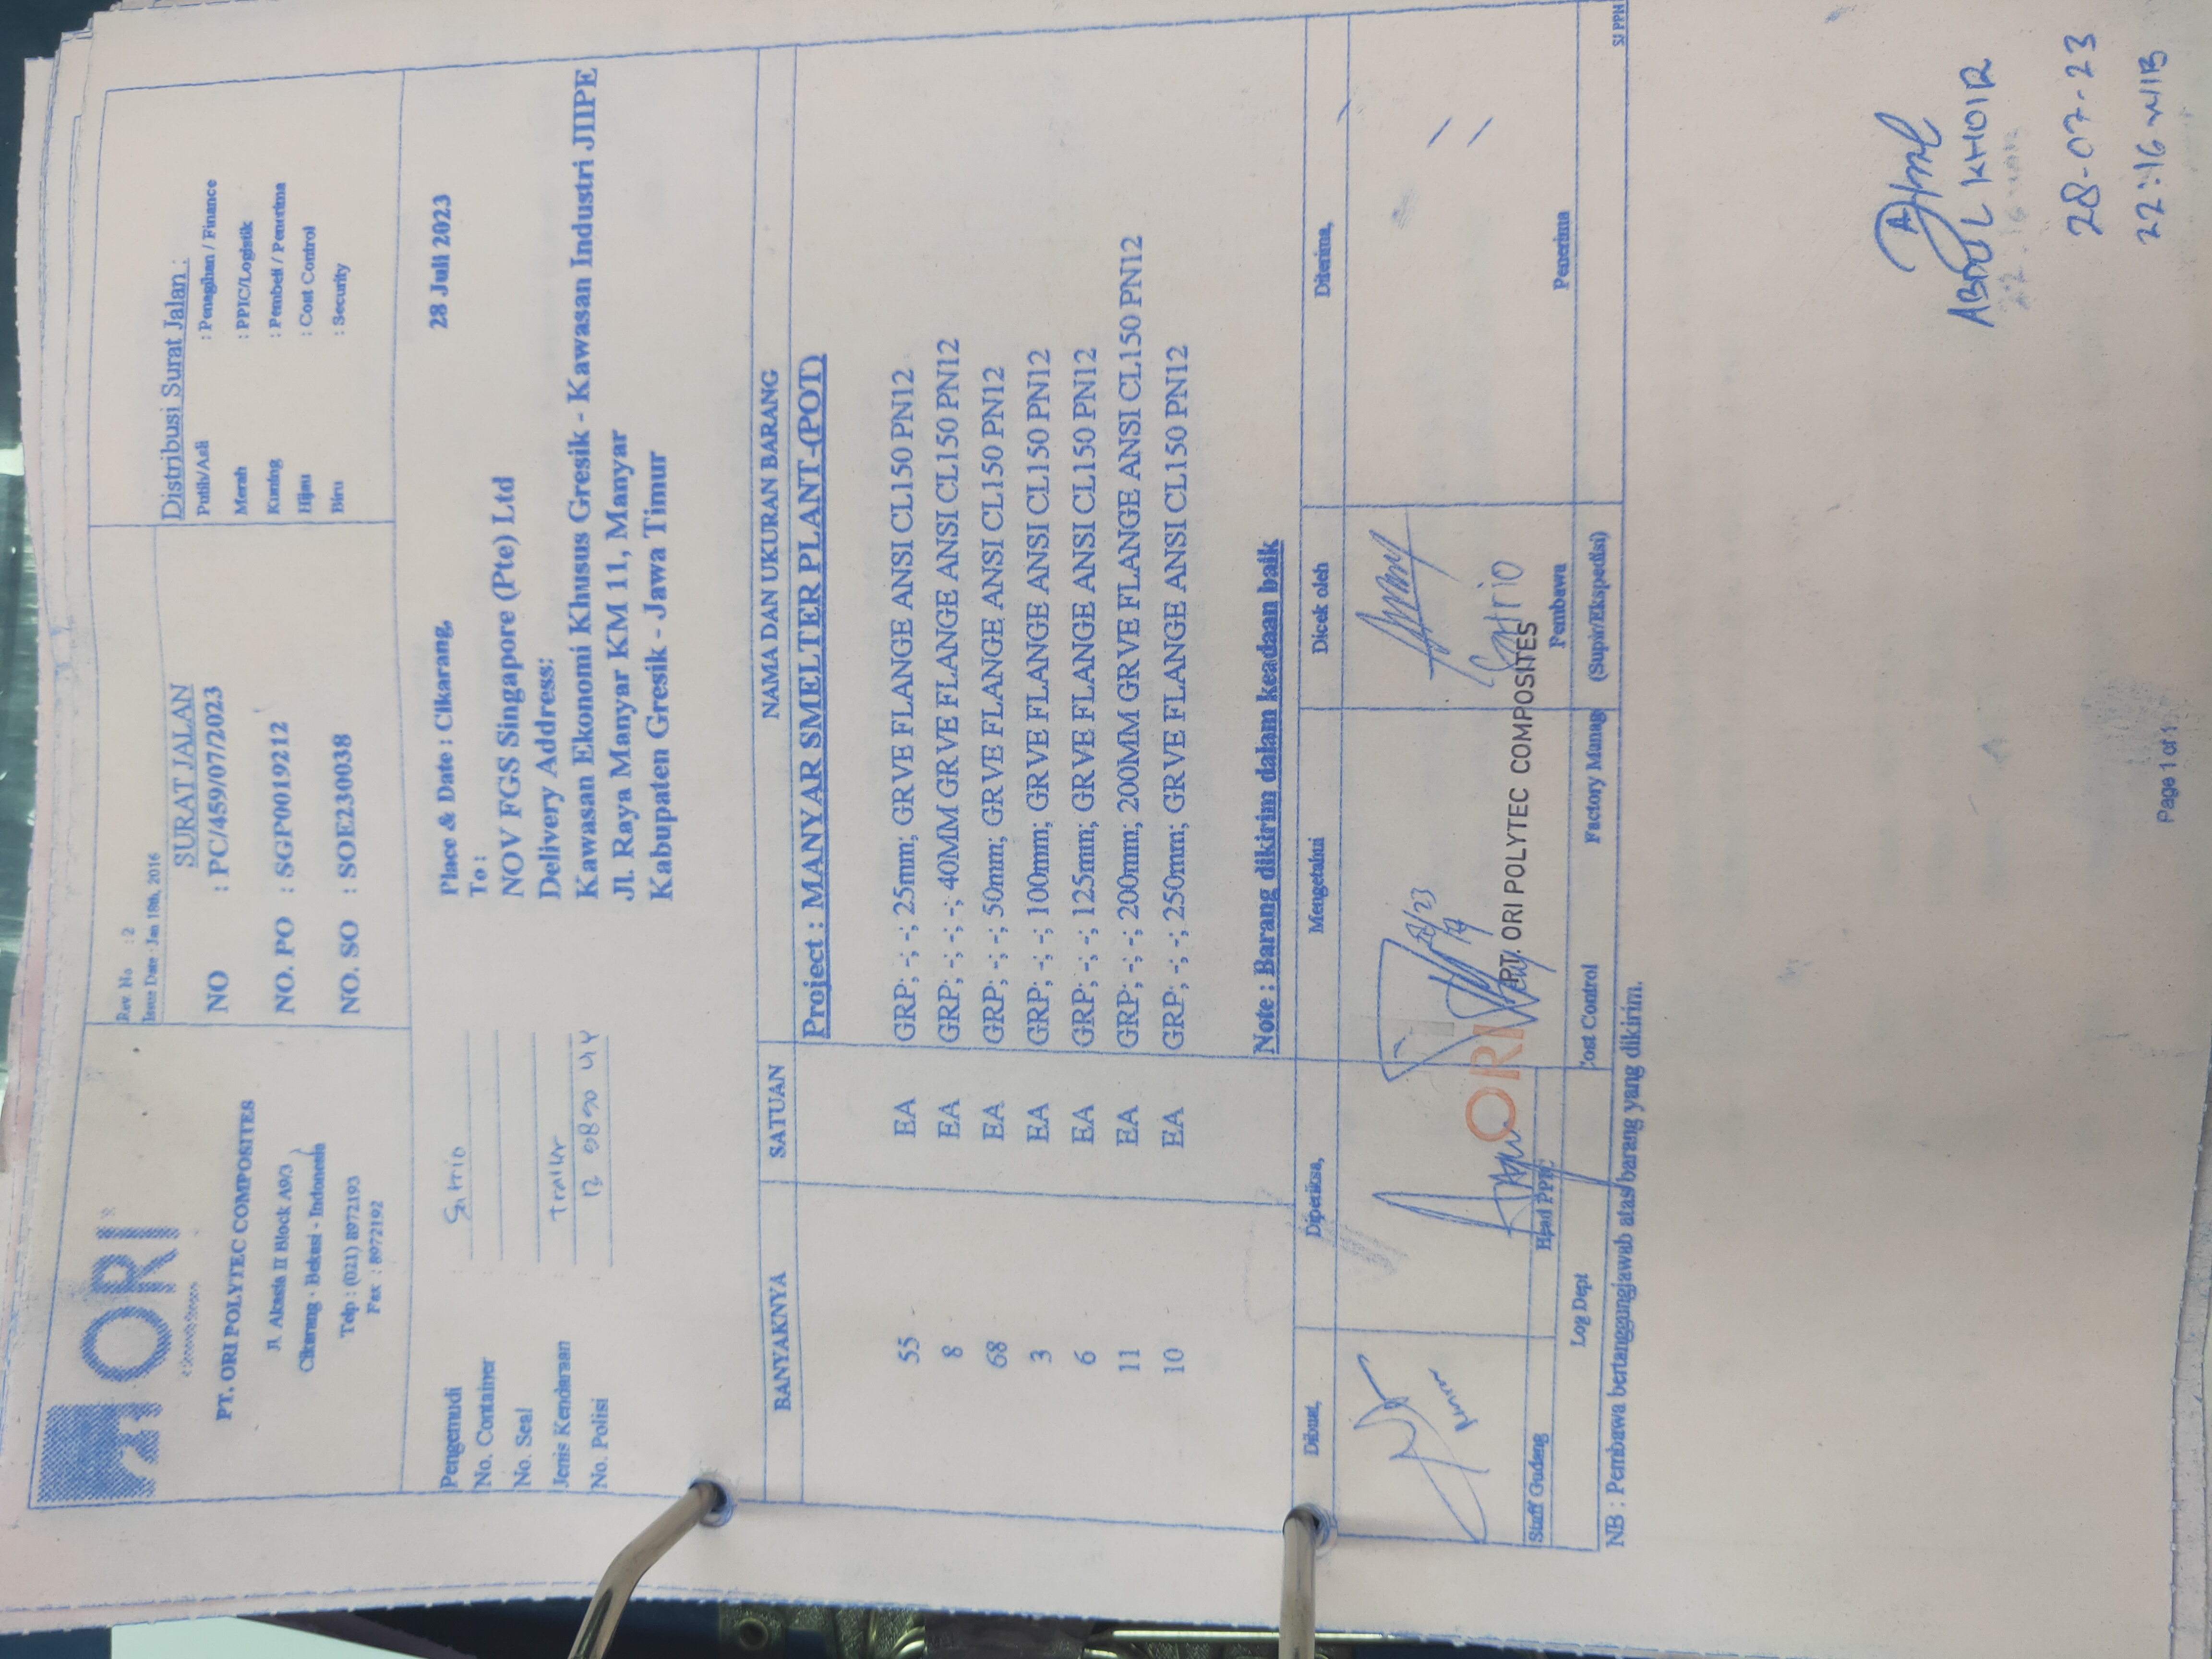 ORI
PT. ORI POLYTEC COMPOSITES
Jl. Akasia II Block A9/3
Cikarang - Bekasi - Indonesia
Telp : (021) 8972193
Fax : 8972192
Rev. No : 2
Issue Date : Jan 18th, 2016
SURAT JALAN
NO : PC/459/07/2023
NO. PO : SGP0019212
NO. SO : SOE230038
Distribusi Surat Jalan :
Putih/Asli : Penagihan / Finance
Merah : PPIC/Logistik
Kuning : Pembeli / Penerima
Hijau : Cost Control
Biru : Security
Pengemudi Satrio
No. Container
No. Seal
Jenis Kendaraan Trailer
No. Polisi
Place & Date : Cikarang, 28 Juli 2023
To :
NOV FGS Singapore (Pte) Ltd
Delivery Address:
Kawasan Ekonomi Khusus Gresik - Kawasan Industri JIIPE
Jl. Raya Manyar KM 11, Manyar
Kabupaten Gresik - Jawa Timur
BANYAKNYA SATUAN NAMA DAN UKURAN BARANG
Project : MANYAR SMELTER PLANT-(POT)
55 EA GRP; -; -; 25mm; GRVE FLANGE ANSI CL150 PN12
8 EA GRP; -; -; -; 40MM GRVE FLANGE ANSI CL150 PN12
68 EA GRP; -; -; 50mm; GRVE FLANGE ANSI CL150 PN12
3 EA GRP; -; -; 100mm; GRVE FLANGE ANSI CL150 PN12
6 EA GRP; -; -; 125mm; GRVE FLANGE ANSI CL150 PN12
11 EA GRP; -; -; 200mm; 200MM GRVE FLANGE ANSI CL150 PN12
10 EA GRP; -; -; 250mm; GRVE FLANGE ANSI CL150 PN12
Note : Barang dikirim dalam keadaan baik
Dibuat, Diperiksa, Mengetahui Dicek oleh Diterima,
ORI PT. ORI POLYTEC COMPOSITES
Satrio
Staff Gudang Head PPIC Pembawa Penerima
Log Dept Cost Control Factory Manag (Supir/Ekspedisi)
SJ PPN
NB : Pembawa bertanggungjawab atas barang yang dikirim.
ABDUL KHOIR
28-07-23
22:16 WIB
Page 1 of 1